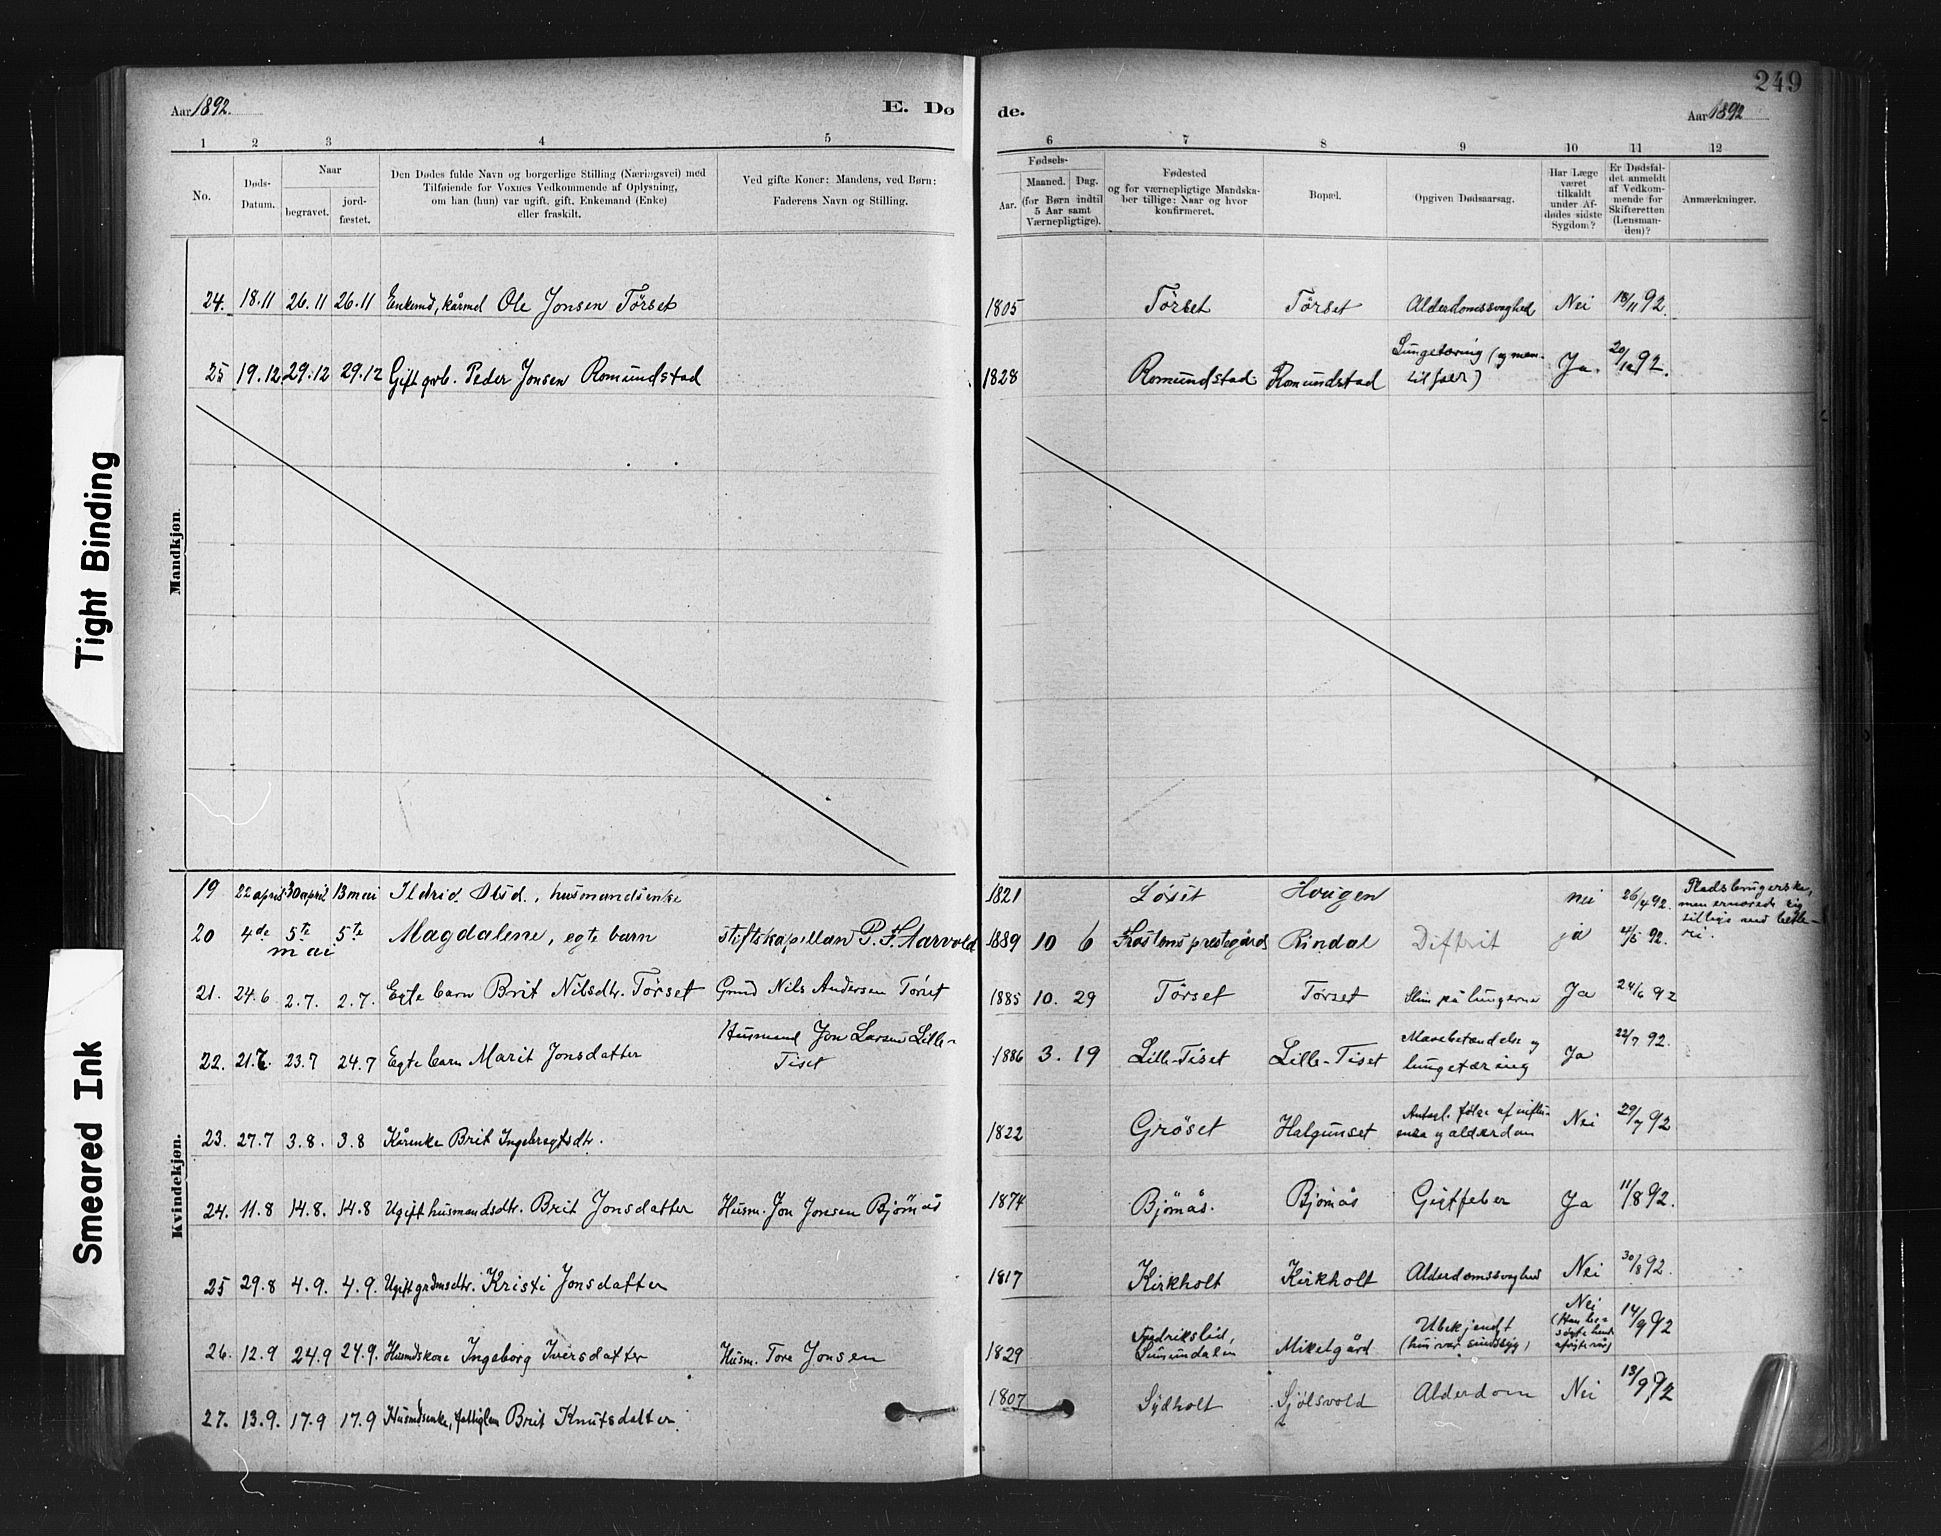 249
Aar 1892.
E. Døde.
Aar 1892
1 2 3 4 5 6 7 8 9 10 11 12
No.
Døds-Datum.
Naar
begravet.
jord-fæstet.
Den Dødes fulde Navn og borgerlige Stilling (Næringsvei) med
Tilføiende for Voxnes Vedkommende af Oplysning,
om han (hun) var ugift, gift, Enkemand (Enke)
eller fraskilt.
Ved gifte Koner: Mandens, ved Børn:
Faderens Navn og Stilling.
Fødsels-
Aar.
Maaned. Dag.
(for Børn indtil
5 Aar samt
Værnepligtige).
Fødested
og for værnepligtige Mandska-
ber tillige: Naar og hvor
konfirmeret.
Bopæl.
Opgiven Dødsaarsag.
Har Læge
været
tilkaldt
under Af-
dødes sidste
Sygdom?
Er Dødsfal-
det anmeldt
af Vedkom-
mende for
Skifteretten
(Lensman-
den)?
Anmærkninger.
Mandkjøn
24. 18.11 26.11 26.11 Enkemd, kårmd Ole Jonsen Tørset 1805 Tørset Tørset Alderdomssvaghed Nei 18/11 92.
25 19.12 29.12 29.12 Gift grb. Peder Jonsen Romundstad 1828 Romundstad Romundstad Lungetæring Ja. 20/12 92.
Kvindekjøn.
19 22 april 30 april 13 mai Ildrid Olsd., husmandsenke 1821 Løset Hougen nei 26/4 92.
20 4de 5te mai 5te Magdalene, egte barn stiftskapellan P. F. Aarvold 1889 10 6 Frostens prestegård Rindal Diftrit ja 4/5 92.
21. 24.6 2.7. 2.7. Egte barn Brit Nilsdtr. Tørset Grmd Nils Andersen Tørset 1885 10. 29 Tørset Tørset Slim på lungerne Ja 24/6 92
22. 21.7. 23.7 24.7 Egte barn Marit Jonsdatter Husmand Jon Larsen Lille-
Tiset 1886 3. 19 Lille-Tiset Lille-Tiset Mavebetændelse og
lungetæring Ja 22/7 92.
23. 27.7 3.8. 3.8 Kårenke Brit Ingebrigtsdtr. 1822 Grøset Halgunset Antagl. følge af influ-
enza og alderdom Nei 29/7 92
24. 11.8 14.8. 14.8 Ugift husmandsdtr. Brit Jonsdatter Husm. Jon Jonsen Bjørnås 1874 Bjørnås. Bjørnås Gigtfeber Ja 11/8 92.
25 29.8 4.9. 4.9. Ugift grdmsdtr. Kristi Jonsdatter 1817 Kirkholt Kirkholt Alderdomssvaghed Nei 30/8 92.
26. 12.9 24.9 24.9. Husmdskone Ingeborg Iversdatter Husm. Tore Jonsen 1829 Fredrikslid,
Sunndalen Mikelgård Ubekjendt
(hun var sindssyg) Nei 14/9 92
27. 13.9. 17.9 17.9 Husmdsenke, fattiglem Brit Knutsdatter. 1807 Sydholt Sjølsvold Alderdom Nei 13/9 92
Tight Binding
Smeared Ink